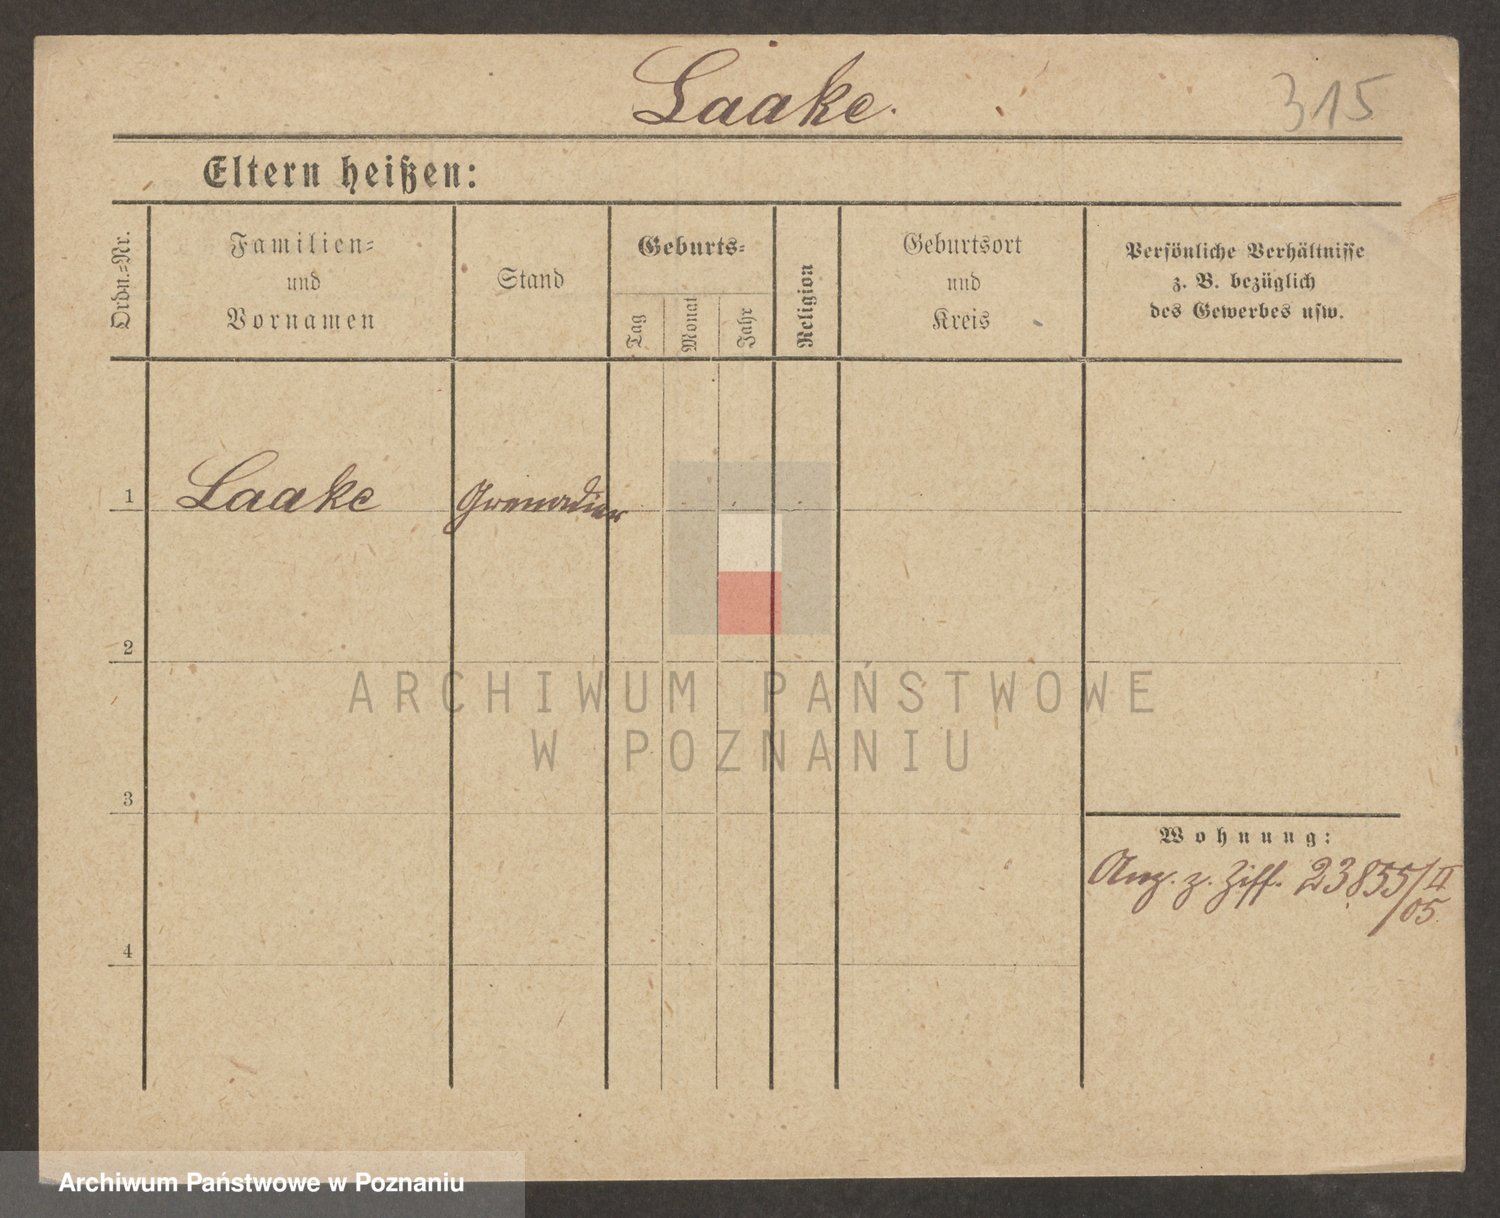 Laake.
315
Eltern heißen:
Ordn.-Nr.
Familien-
und
Vornamen
Stand
Geburts-
Tag
Monat
Jahr
Religion
Geburtsort
und
Kreis
Persönliche Verhältnisse
z. B. bezüglich
des Gewerbes usw.
1
Laake
Grenadier
2
ARCHIWUM PAŃSTWOWE
W POZNANIU
3
Wohnung:
Anz. z. Ziff. 23855/II
/05.
4
Archiwum Państwowe w Poznaniu